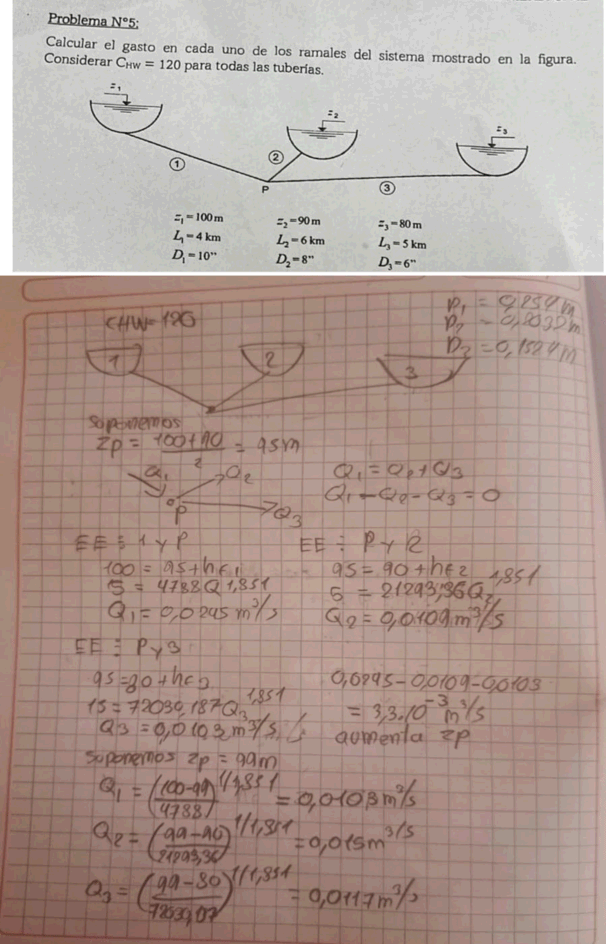 Problema N°5:
Calcular el gasto en cada uno de los ramales del sistema mostrado en la figura.
Considerar CHW = 120 para todas las tuberías.
z1
z2
z3
1
2
3
P
z1 = 100 m
L1 = 4 km
D1 = 10"
z2 = 90 m
L2 = 6 km
D2 = 8"
z3 = 80 m
L3 = 5 km
D3 = 6"
CHW= 120
D1 = 0,254 m
D2 = 0,2032 m
D3 = 0,1524 m
1
2
3
suponemos
Zp = 100+90/2 = 95m
Q1
Q2
Q3
P
Q1 = Q2 + Q3
Q1 - Q2 - Q3 = 0
EE: 1 y P
100 = 95 + hf1
5 = 4788 Q 1,851
Q1 = 0,0245 m³/s
EE: P y 2
95 = 90 + hf2
5 = 21293,36 Q2 1,851
Q2 = 0,0109 m³/s
EE: P y 3
95 = 80 + hf3
15 = 72039,187 Q3 1,851
Q3 = 0,0103 m³/s
0,0245 - 0,0109 - 0,0103
= 3,3.10⁻³ m³/s
aumenta Zp
suponemos Zp = 99m
Q1 = (100-99/4788) 1/1,851 = 0,0103 m³/s
Q2 = (99-90/21293,36) 1/1,851 = 0,015 m³/s
Q3 = (99-80/72039,07) 1/1,851 = 0,0117 m³/s